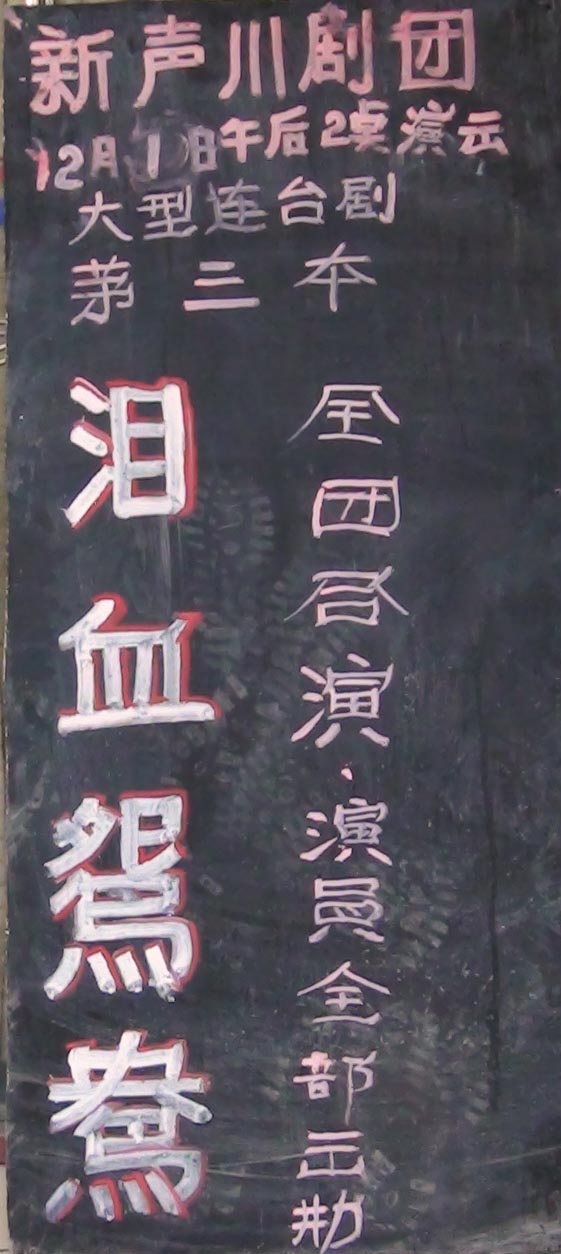 新声川剧团
12月1日午后2点演出
大型连台剧
第三本
泪血鴛鴦
全团合演、演员全部出勤